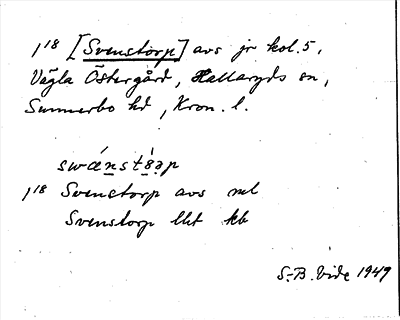 1/18 [Svenstorp] avs jr kol. 5,
Vägla Östergård, Hallaryds sn,
Sunnerbo hd, Kron. l.
swánstòrp
1/18 Svenstorp avs ml
Svenstorp lht kb
S.-B. Vide 1949